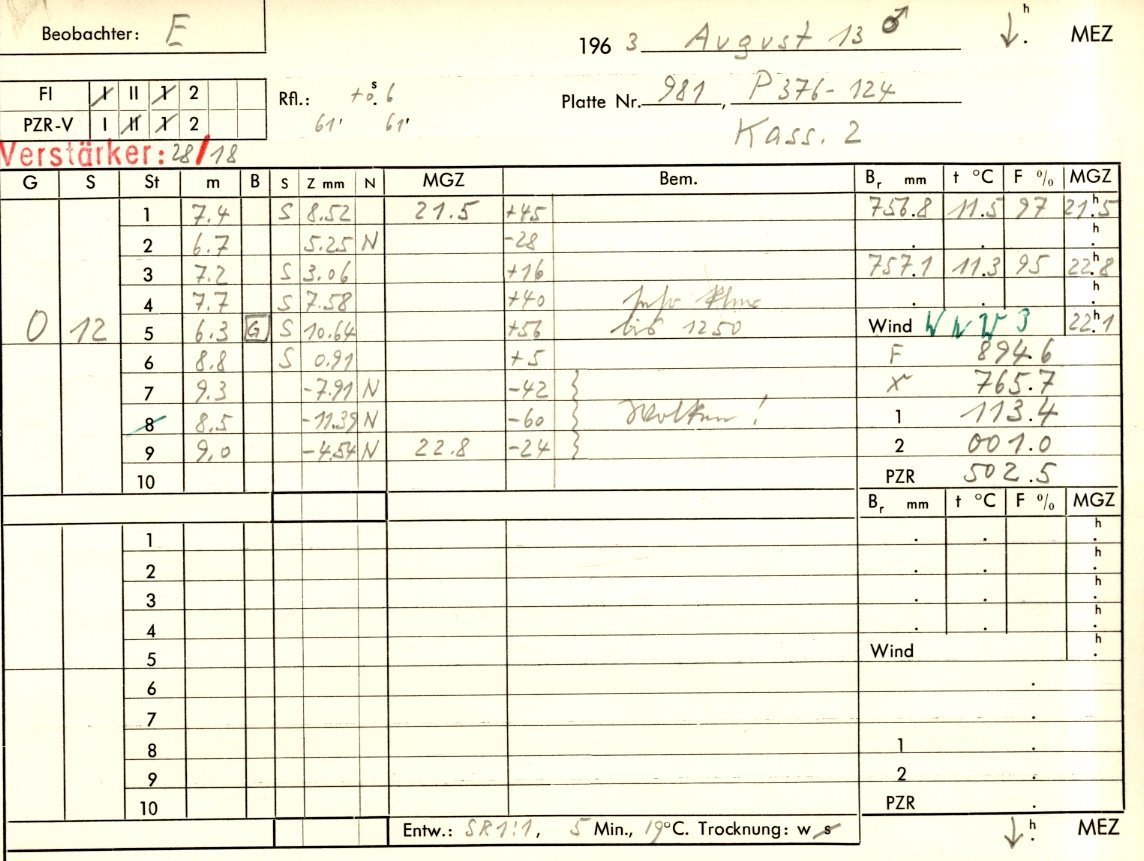 Beobachter: E
196 3 August 13 ♂ ↓ h . MEZ
FI I II 1 2 Rfl.: +0.s6 Platte Nr. 981, P376-124
PZR-V I II 1 2 61' 61' Kass. 2
Verstärker: 28/18
G S St m B S Z mm N MGZ Bem. Br mm t °C F % MGZ
1 7.4 S 8.52 21.5 +45 756.8 11.5 97 21h.5
2 6.7 5.25 N -28 . . h .
3 7.2 S 3.06 +16 757.1 11.3 95 22h.8
4 7.7 S 7.58 +40 . . h .
0 12 5 6.3 G S 10.64 +56 bis 1250 Wind WNW 3 22h.1
6 8.8 S 0.91 +5 F 894.6
7 9.3 -7.91 N -42 } 765.7
8 8.5 -11.39 N -60 } Wolken! 1 113.4
9 9.0 -4.54 N 22.8 -24 } 2 001.0
10 PZR 502.5
Br mm t °C F % MGZ
1 . . h .
2 . . h .
3 . . h .
4 . . h .
5 Wind h .
6 .
7 .
8 1 .
9 2 .
10 PZR .
Entw.: SR 1:1, 5 Min., 19°C. Trocknung: w s ↓ h . MEZ